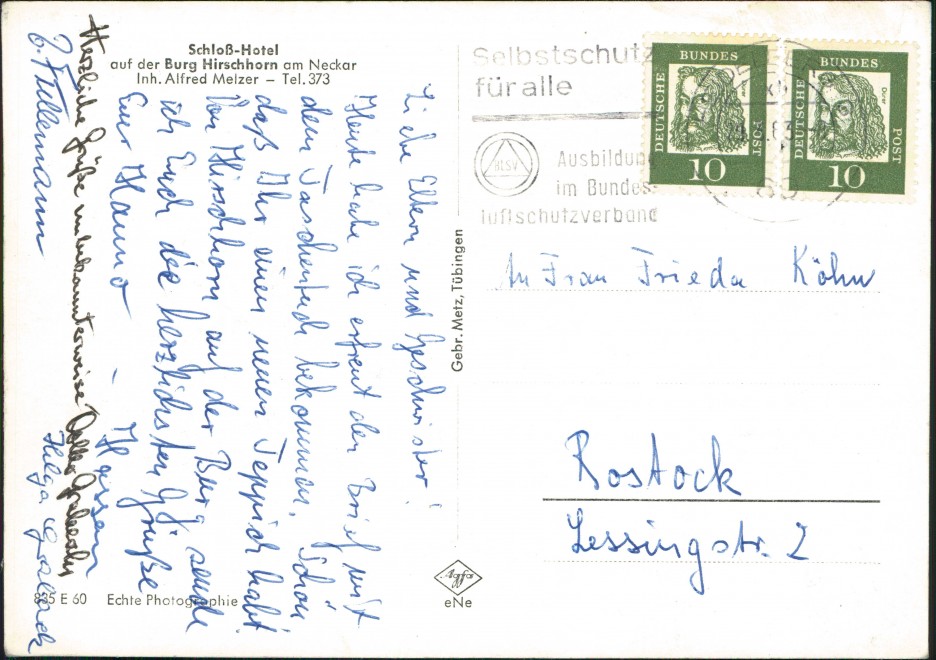 Schloß-Hotel
auf der Burg Hirschhorn am Neckar
Inh. Alfred Melzer – Tel. 373
Liebe Eltern und Geschwister!
Heute habe ich erfreut den Brief mit
dem Taschentuch bekommen. Schön
daß Ihr einen neuen Teppich habt
Von Hirschhorn auf der Burg sende
ich Euch die herzlichsten Grüße
Euer Hanno –
Herzliche Grüße unbekannterweise
Helga
835 E 60 Echte Photographie
Gebr. Metz, Tübingen
Agfa
eNe
Selbstschutz
für alle
BLSV
Ausbildung
im Bundes-
luftschutzverband
DEUTSCHE BUNDES POST
Dürer
10
DEUTSCHE BUNDES POST
Dürer
10
An Frau Frieda Köhn
Rostock
Lessingstr. 2